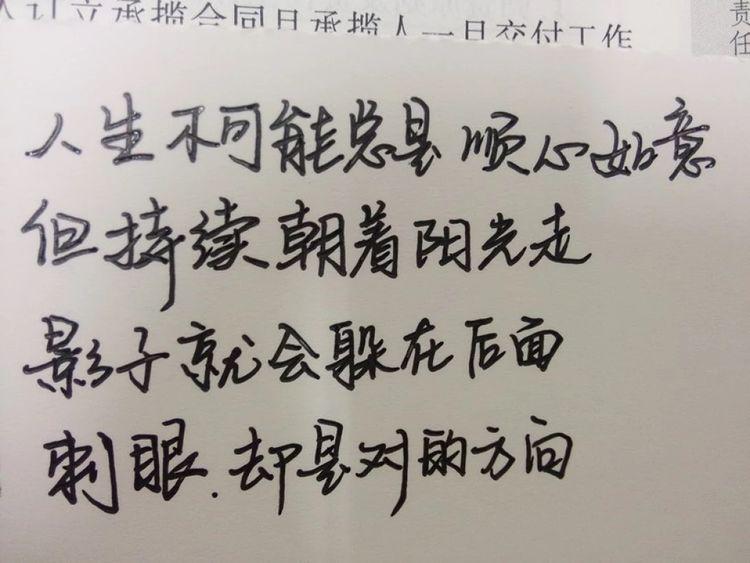 人订立承揽合同且承揽人一旦交付工作
责
任
人生不可能总是顺心如意
但持续朝着阳光走
影子就会躲在后面
刺眼.却是对的方向